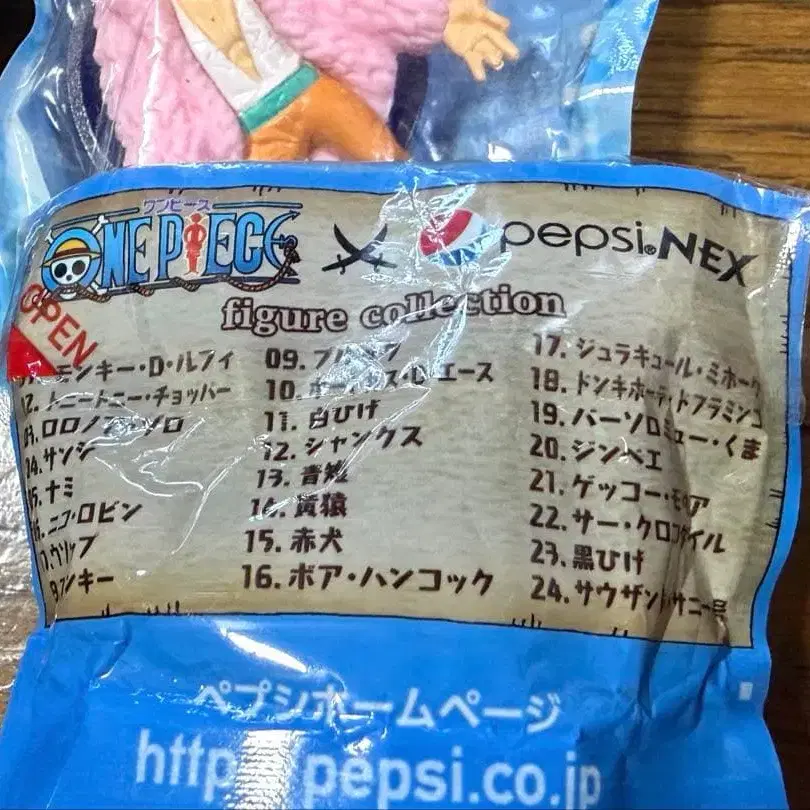 ワンピース
ONE PIECE
pepsi NEX
figure collection
OPEN
01. モンキー・D・ルフィ
02. トニートニー・チョッパー
03. ロロノア・ゾロ
04. サンジ
05. ナミ
06. ニコ・ロビン
07. ウソップ
08. フランキー
09. ブルック
10. ポートガス・D・エース
11. 白ひげ
12. シャンクス
13. 青雉
14. 黄猿
15. 赤犬
16. ボア・ハンコック
17. ジュラキュール・ミホーク
18. ドンキホーテ・ドフラミンゴ
19. バーソロミュー・くま
20. ジンベエ
21. ゲッコー・モリア
22. サー・クロコダイル
23. 黒ひげ
24. サウザンド・サニー号
ペプシホームページ
http://pepsi.co.jp